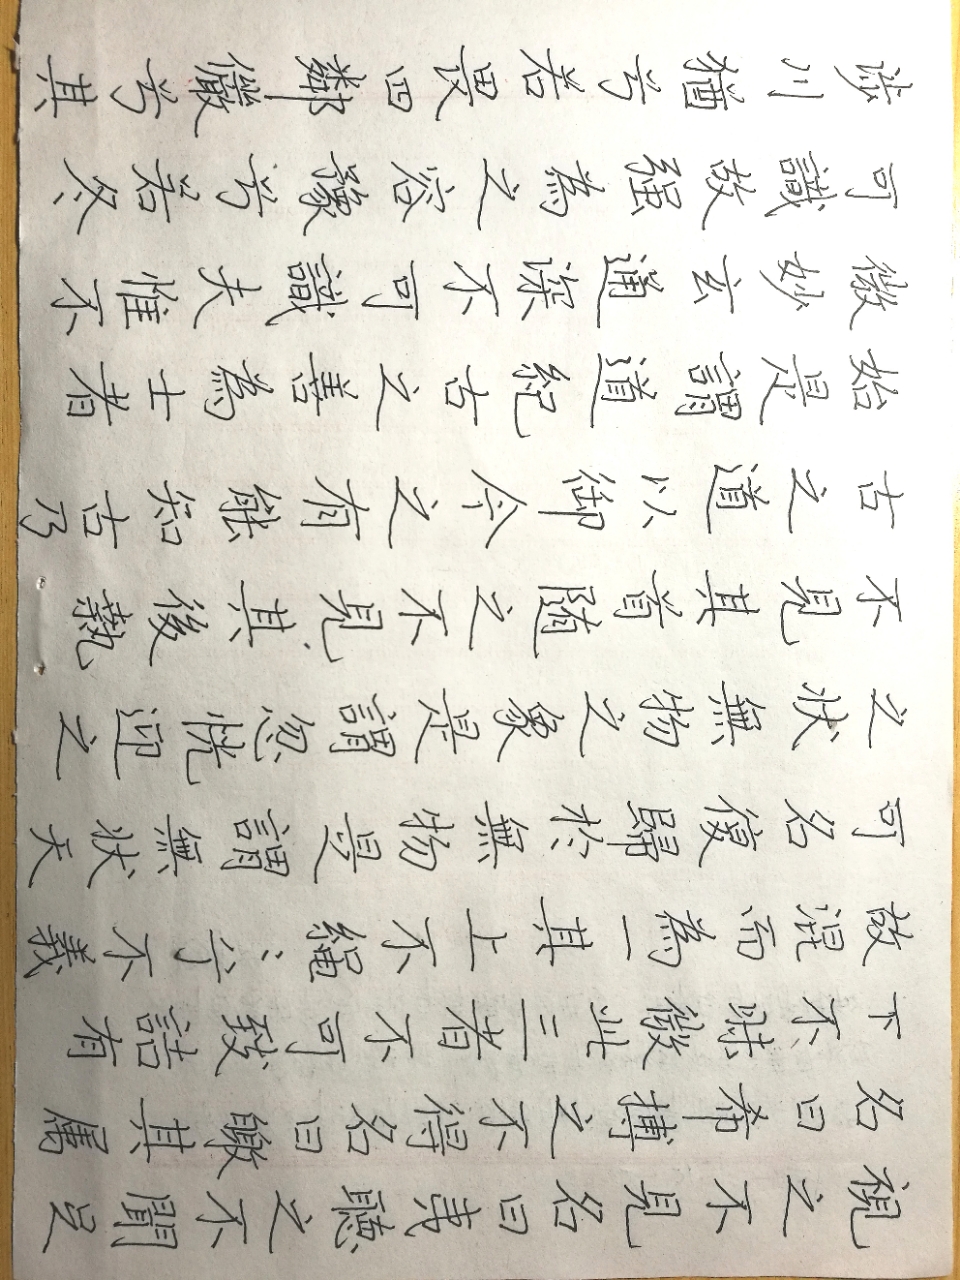 視之不見名曰夷聽之不聞足
名曰希搏之不得名曰皦其屬
下不昧微此三者不可致詰有
故混而為一其上不繩〻兮不義
可名復歸於無物是謂無狀天
之狀無物之象是謂忽恍迎之
不見其首隨之不見其後執
古之道以御今之有能知古乃
始是謂道紀古之善為士者
微妙玄通深不可識夫惟不
可識故强為之容豫兮若冬
涉川猶兮若畏四鄰儼兮其